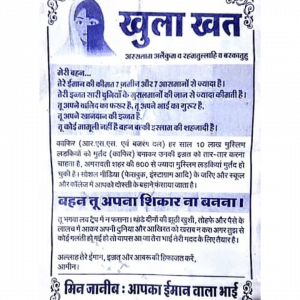 खुला खत
अस्सलामु अलैकुम व रहमतुल्लाहि व बरकातुहु
मेरी बहन...
तेरे ईमान की कीमत 7 ज़मीन और 7 आसमानों से ज्यादा है।
तेरी इज्जत सारी दुनियाँ के मुसलमानों की जान से ज्यादा कीमती है।
तू अपने वालिद का फख़र है, तू अपने भाई का गुरूर है,
तू अपने खानदान की इज्जत है.
तू कोई मामूली नहीं है बहन बल्की इस्लाम की शहजादी है।
काफिर (आर.एस.एस. एवं बजरंग दल) हर साल 10 लाख मुस्लिम
लड़कियों को मुर्तद (काफिर) बनाकर उनकी इज्जत को तार-तार करना
चाहता है, अमरावती शहर की 800 से ज्यादा मुस्लिम लड़कियां मुर्तद हो
चुकी है। सोशल मीडिया (फेसबुक, इंस्टाग्राम आदि) के जरिए और स्कूल
और कॉलेज में आपको दोस्ती के बहाने फंसाया जाता है।
बहन तू अपना शिकार ना बनना।
तू भगवा लव ट्रेप में न फसना। थोडे दीनों की झूठी खुशी, तोहफे और पैसे के
लालच में आकर अपनी दुनिया और आखिरत को खराब न कर। अगर तुझ से
कोई गलती हो गई हो तो वापस आ जा तेरा भाई तेरी मदद के लिए तैयार है।
अल्लाह तेरे ईमान, इज्जत और आबरू की हिफाजत करें,
आमीन।
मिन जानीब : आपका ईमान वाला भाई